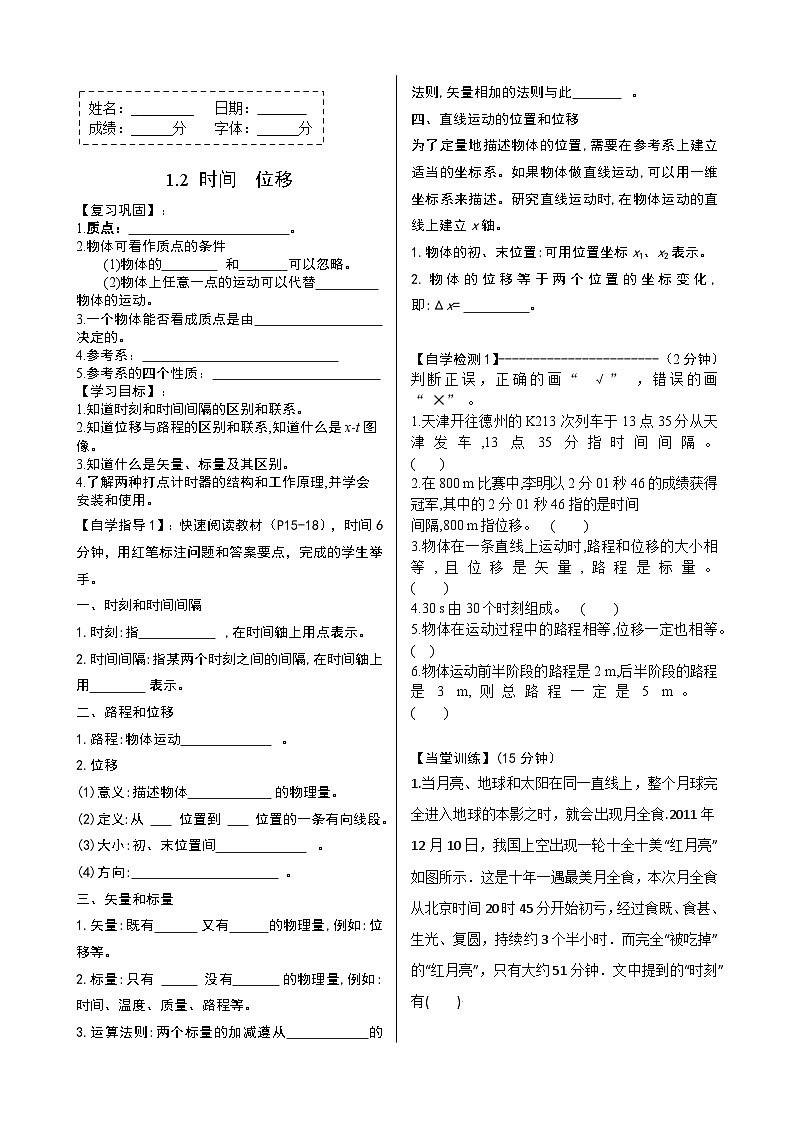 姓名：________ 日期：______
成绩：_____分 字体：_____分
1.2 时间 位移
【复习巩固】：
1.质点：____________________。
2.物体可看作质点的条件
(1)物体的_______ 和______可以忽略。
(2)物体上任意一点的运动可以代替________
物体的运动。
3.一个物体能否看成质点是由________________
决定的。
4.参考系：________________________
5.参考系的四个性质：_____________________
【学习目标】：
1.知道时刻和时间间隔的区别和联系。
2.知道位移与路程的区别和联系,知道什么是x-t图
像。
3.知道什么是矢量、标量及其区别。
4.了解两种打点计时器的结构和工作原理,并学会
安装和使用。
【自学指导1】：快速阅读教材（P15-18），时间6
分钟，用红笔标注问题和答案要点，完成的学生举
手。
一、时刻和时间间隔
1.时刻:指__________ ,在时间轴上用点表示。
2.时间间隔:指某两个时刻之间的间隔,在时间轴上
用_______表示。
二、路程和位移
1.路程:物体运动____________ 。
2.位移
(1)意义:描述物体___________的物理量。
(2)定义:从 ___ 位置到 ___ 位置的一条有向线段。
(3)大小:初、末位置间____________ 。
(4)方向:____________________ 。
三、矢量和标量
1.矢量:既有_____又有_____的物理量,例如:位
移等。
2.标量:只有 _____ 没有______的物理量,例如:
时间、温度、质量、路程等。
3.运算法则:两个标量的加减遵从___________的
法则,矢量相加的法则与此______ 。
四、直线运动的位置和位移
为了定量地描述物体的位置,需要在参考系上建立
适当的坐标系。如果物体做直线运动,可以用一维
坐标系来描述。研究直线运动时,在物体运动的直
线上建立x轴。
1.物体的初、末位置:可用位置坐标x₁、x₂表示。
2.物体的位移等于两个位置的坐标变化,
即:Δx=_________。
【自学检测1】-----------------------（2分钟）
判断正误，正确的画“ √” ，错误的画
“ ×” 。
1.天津开往德州的K213次列车于13点35分从天
津发车,13点35分指时间间隔。
( )
2.在800 m比赛中,李明以2分01秒46的成绩获得
冠军,其中的2分01秒46指的是时间
间隔,800 m指位移。 ( )
3.物体在一条直线上运动时,路程和位移的大小相
等,且位移是矢量,路程是标量。
( )
4.30 s由30个时刻组成。 ( )
5.物体在运动过程中的路程相等,位移一定也相等。
( )
6.物体运动前半阶段的路程是2 m,后半阶段的路程
是3 m,则总路程一定是5 m。
( )
【当堂训练】(15分钟)
1.当月亮、地球和太阳在同一直线上，整个月球完
全进入地球的本影之时，就会出现月全食.2011年
12月10日，我国上空出现一轮十全十美“红月亮”
如图所示．这是十年一遇最美月全食，本次月全食
从北京时间20时45分开始初亏，经过食既、食甚、
生光、复圆，持续约3个半小时．而完全“被吃掉”
的“红月亮”，只有大约51分钟．文中提到的“时刻”
有( )